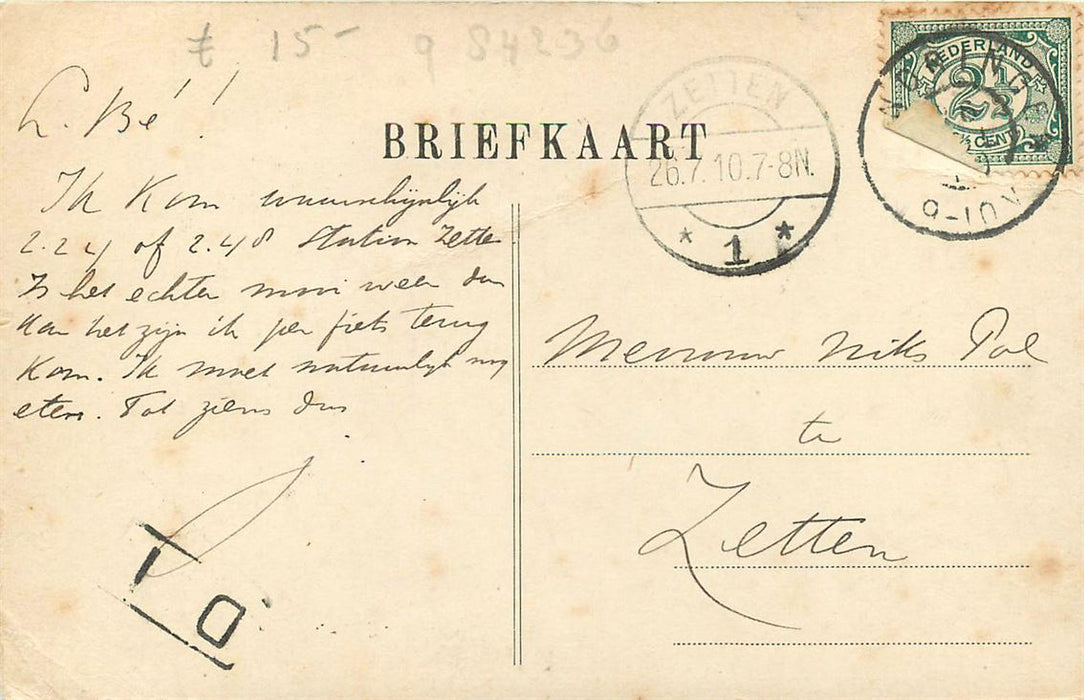 t 15- 9 84236
L. Bé!
BRIEFKAART
ZETTEN
26.7.10.7-8N.
* 1 *
NEDERLAND
2½
CENT
9-10
Ik Kom waarschijnlijk
2.24 of 2.48 Station Zetten
Is het echter mooi weer dan
kan het zijn ik per fiets terug
Kom. Ik moet natuurlijk nog
eten. Tot ziens dus
Mevrouw Niks Pol
te
Zetten